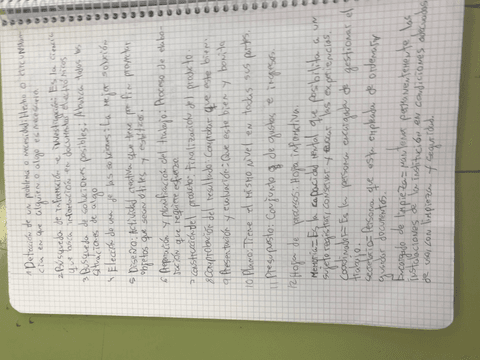 1 Detección de un problema o necesidad: Hecho o circunstan-
cia en que alguien o algo es necesario
2 Búsqueda de información e investigación: Es la ciencia
que busca información en documentos electrónicos
3 Búsqueda de soluciones posibles: Abarca todas las
situaciones de algo
4 Elección de una de las soluciones: La mejor solución
5 Diseño: Actividad creativa que tiene por fin proyectar
objetos que sean útiles y estéticos.
6 Asignación y planificación del trabajo: Proceso de elabo-
ración que requiere esfuerzo
7 construcción del producto: finalización del producto
8 Comprobación del resultado: Comprobar que este bien.
9 Presentación y evaluación: Que este bien y bonito
10 Plano: Tiene el mismo nivel en todas sus partes.
11 Presupuesto: Conjunto de gastos e ingresos.
12 Hoja de proceso: Hoja informativa
Memoria= Es la capacidad mental que posibilita a un
sujeto registrar, conservar y las experiencias.
Coordinador= Es la persona encargada de gestionar el
trabajo.
secretario= Persona que está empleada de ordenar y
guardar documentos.
Encargado de limpieza= mantiene permanentemente las
instalaciones de la institución en condiciones adecuadas
de uso, con limpieza y seguridad.